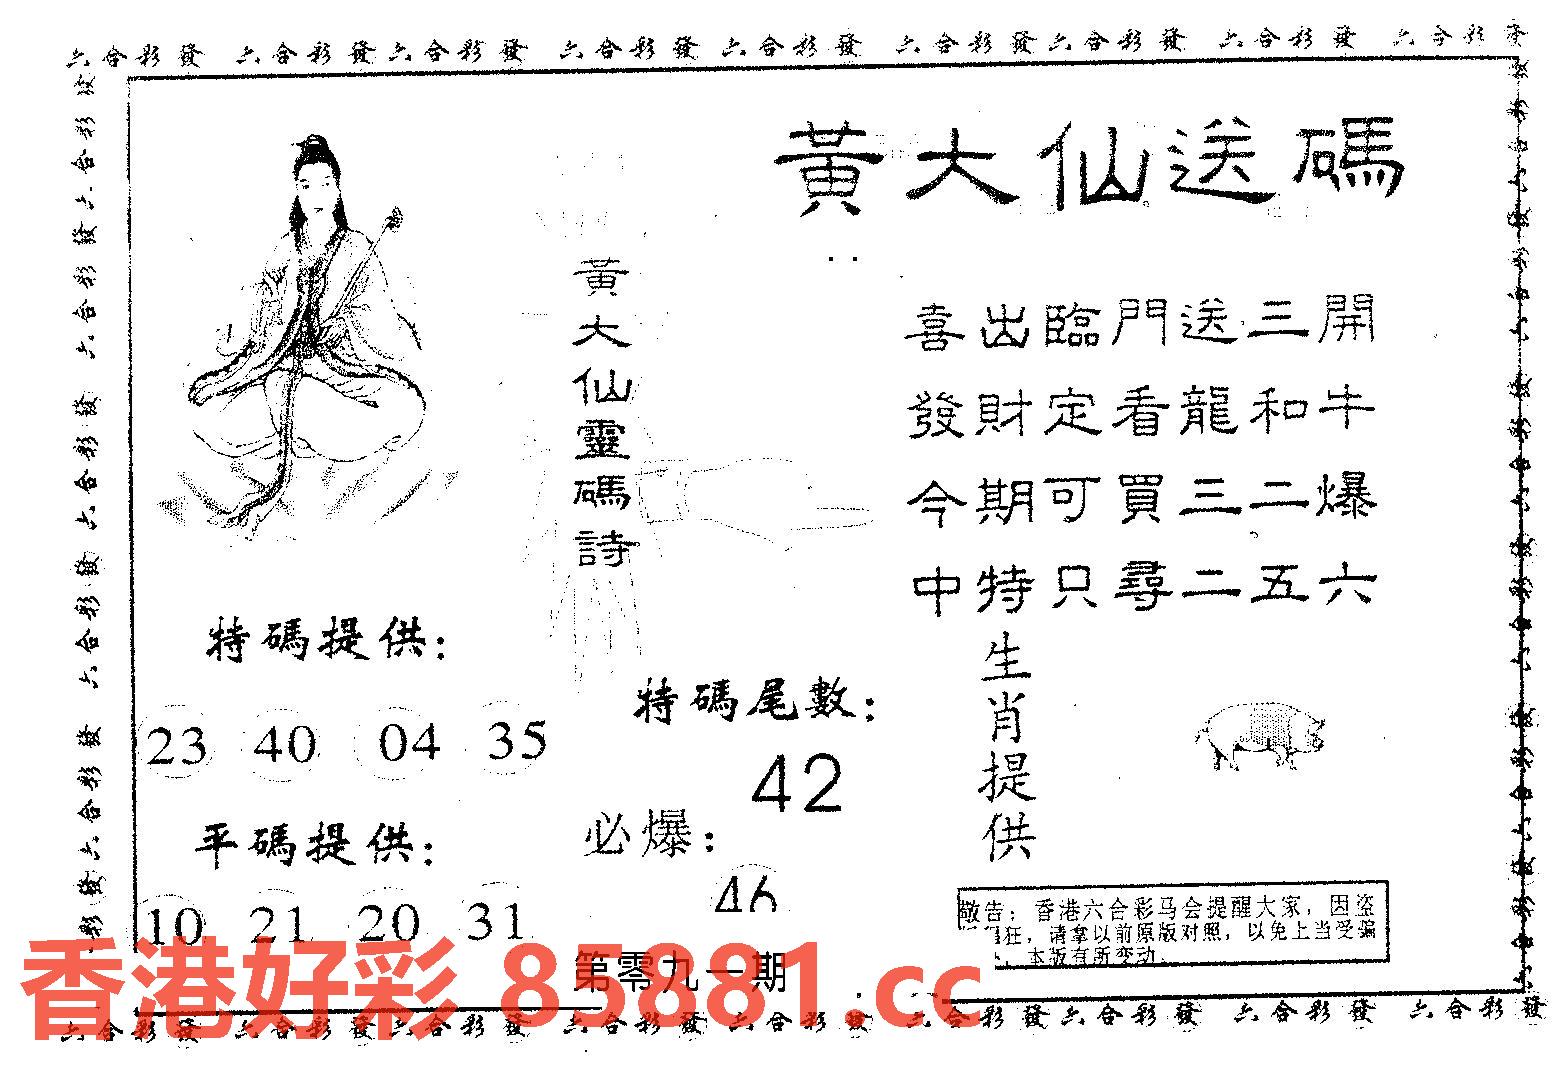 六合彩發 六合彩發 六合彩發 六合彩發 六合彩發 六合彩發 六合彩發 六合彩發 六合彩發
黃大仙送碼
黃大仙靈碼詩
喜出臨門送三開
發財定看龍和牛
今期可買三二爆
中特只尋二五六
特碼提供：
23 40 04 35
平碼提供：
10 21 20 31
特碼尾數：
42
必爆：
46
生肖提供
敬告：香港六合彩马会提醒大家，因盗
狂，请拿以前原版对照，以免上当受骗
，本版有所变动.
第零九一期
香港好彩 85881.cc
六合彩發 六合彩發 六合彩發 六合彩發 六合彩發 六合彩發 六合彩發 六合彩發 六合彩發